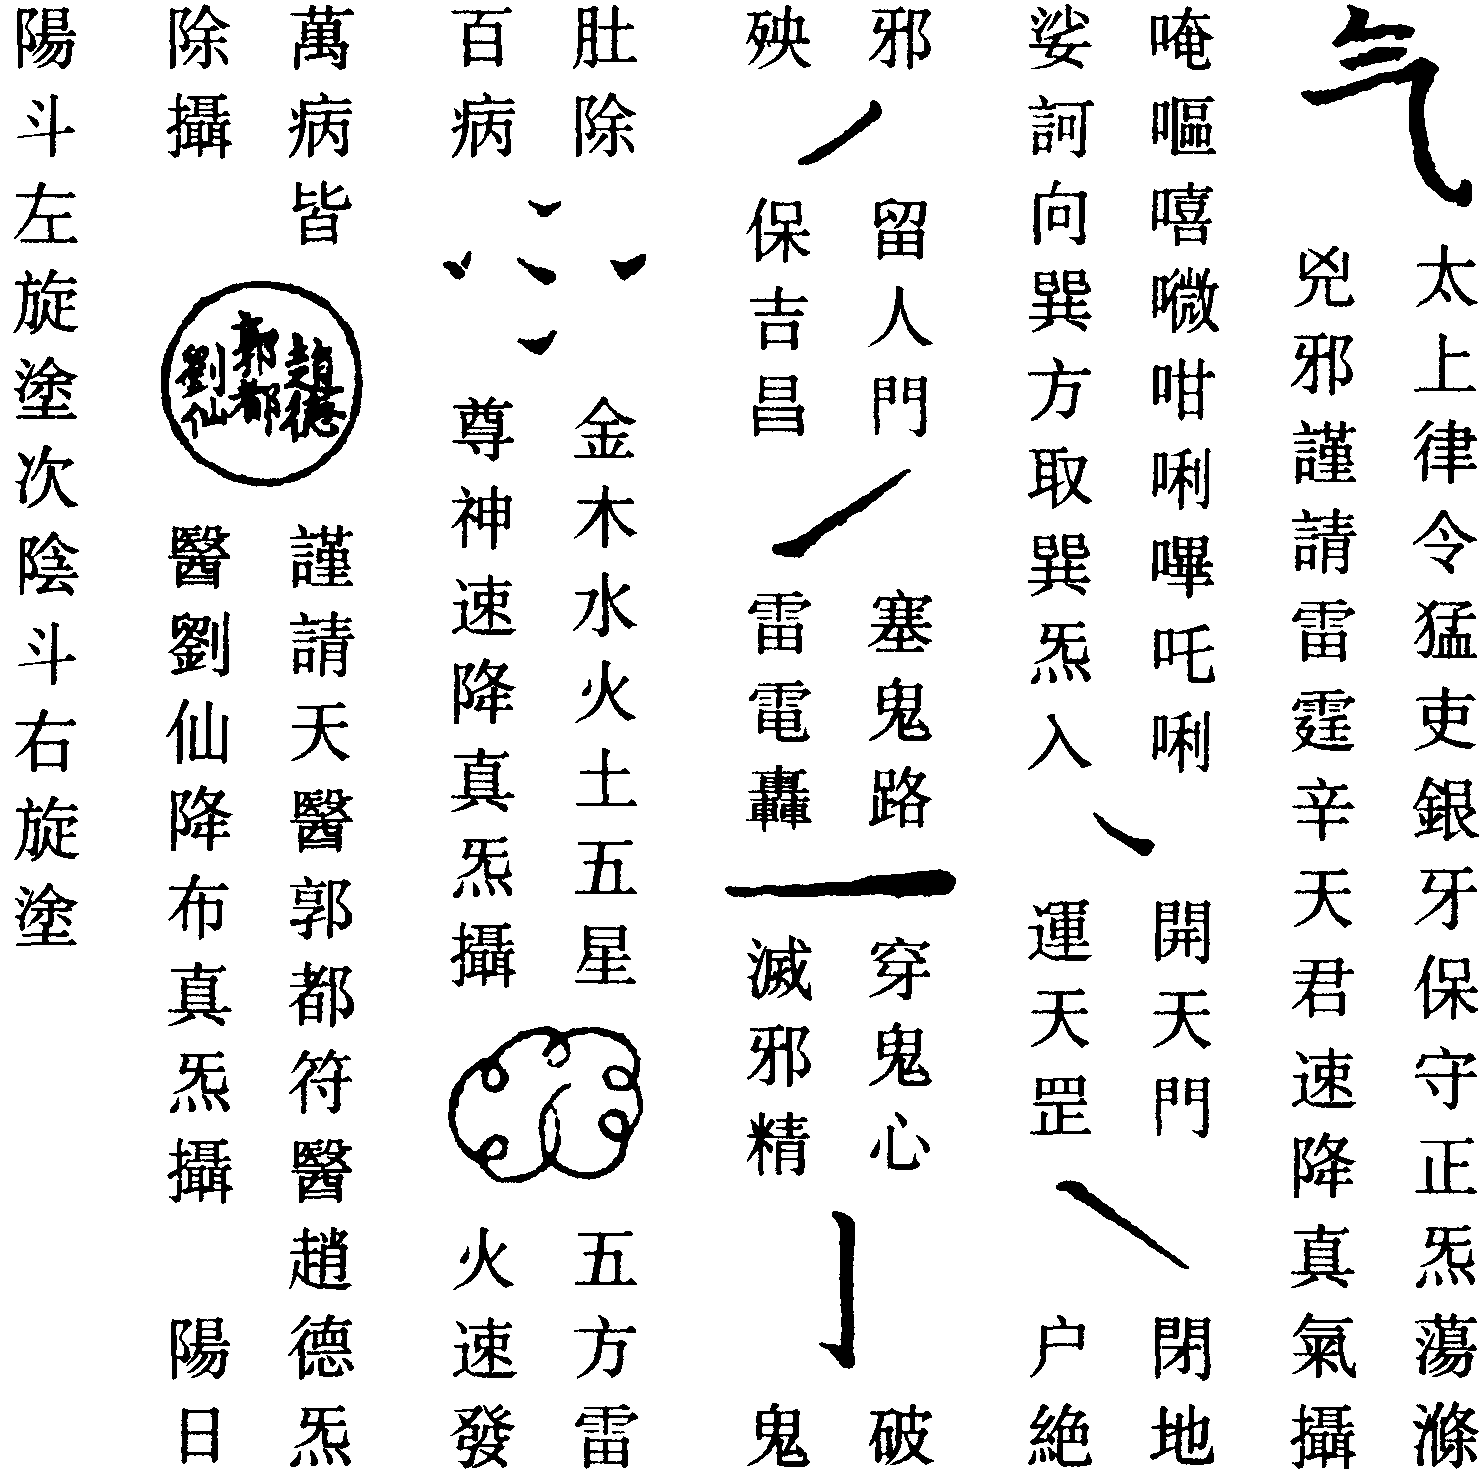 气
太上律令猛吏銀牙保守正炁蕩滌
兇邪謹請雷霆辛天君速降真氣攝
唵嘔嘻咁唎嗶吒唎
娑訶向巽方取巽炁入
開天門
運天罡
閉地
户絶
邪
殃
留人門
保吉昌
塞鬼路
雷電轟
穿鬼心
滅邪精
破
鬼
肚除
百病
金木水火土五星
尊神速降真炁攝
五方雷
火速發
萬病皆
除攝
趙德
郭都
劉仙
謹請天醫郭都符醫趙德炁
醫劉仙降布真炁攝 陽日
陽斗左旋塗次陰斗右旋塗